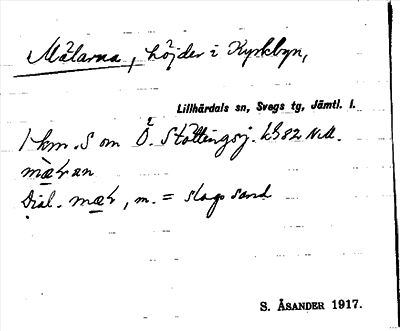 Mälarna, höjder i Kyrkbyn,
Lillhärdals sn, Svegs tg, Jämtl. l.
1 km. S om Ö. Stöttingsj. kb 82 N.M.
Dial. mæל, m. = slags sand
S. ÅSANDER 1917.